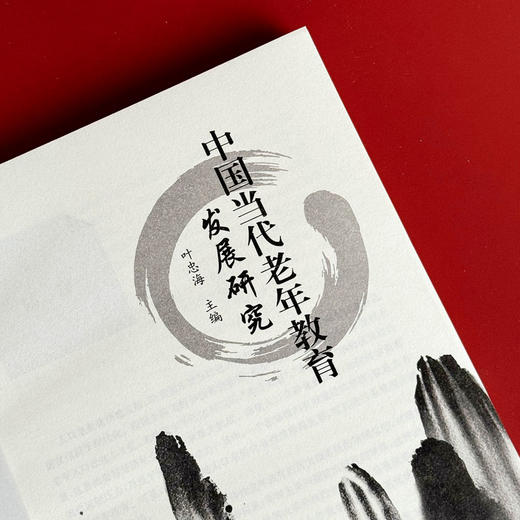 中国当代老年教育
发展研究
叶忠海 主编